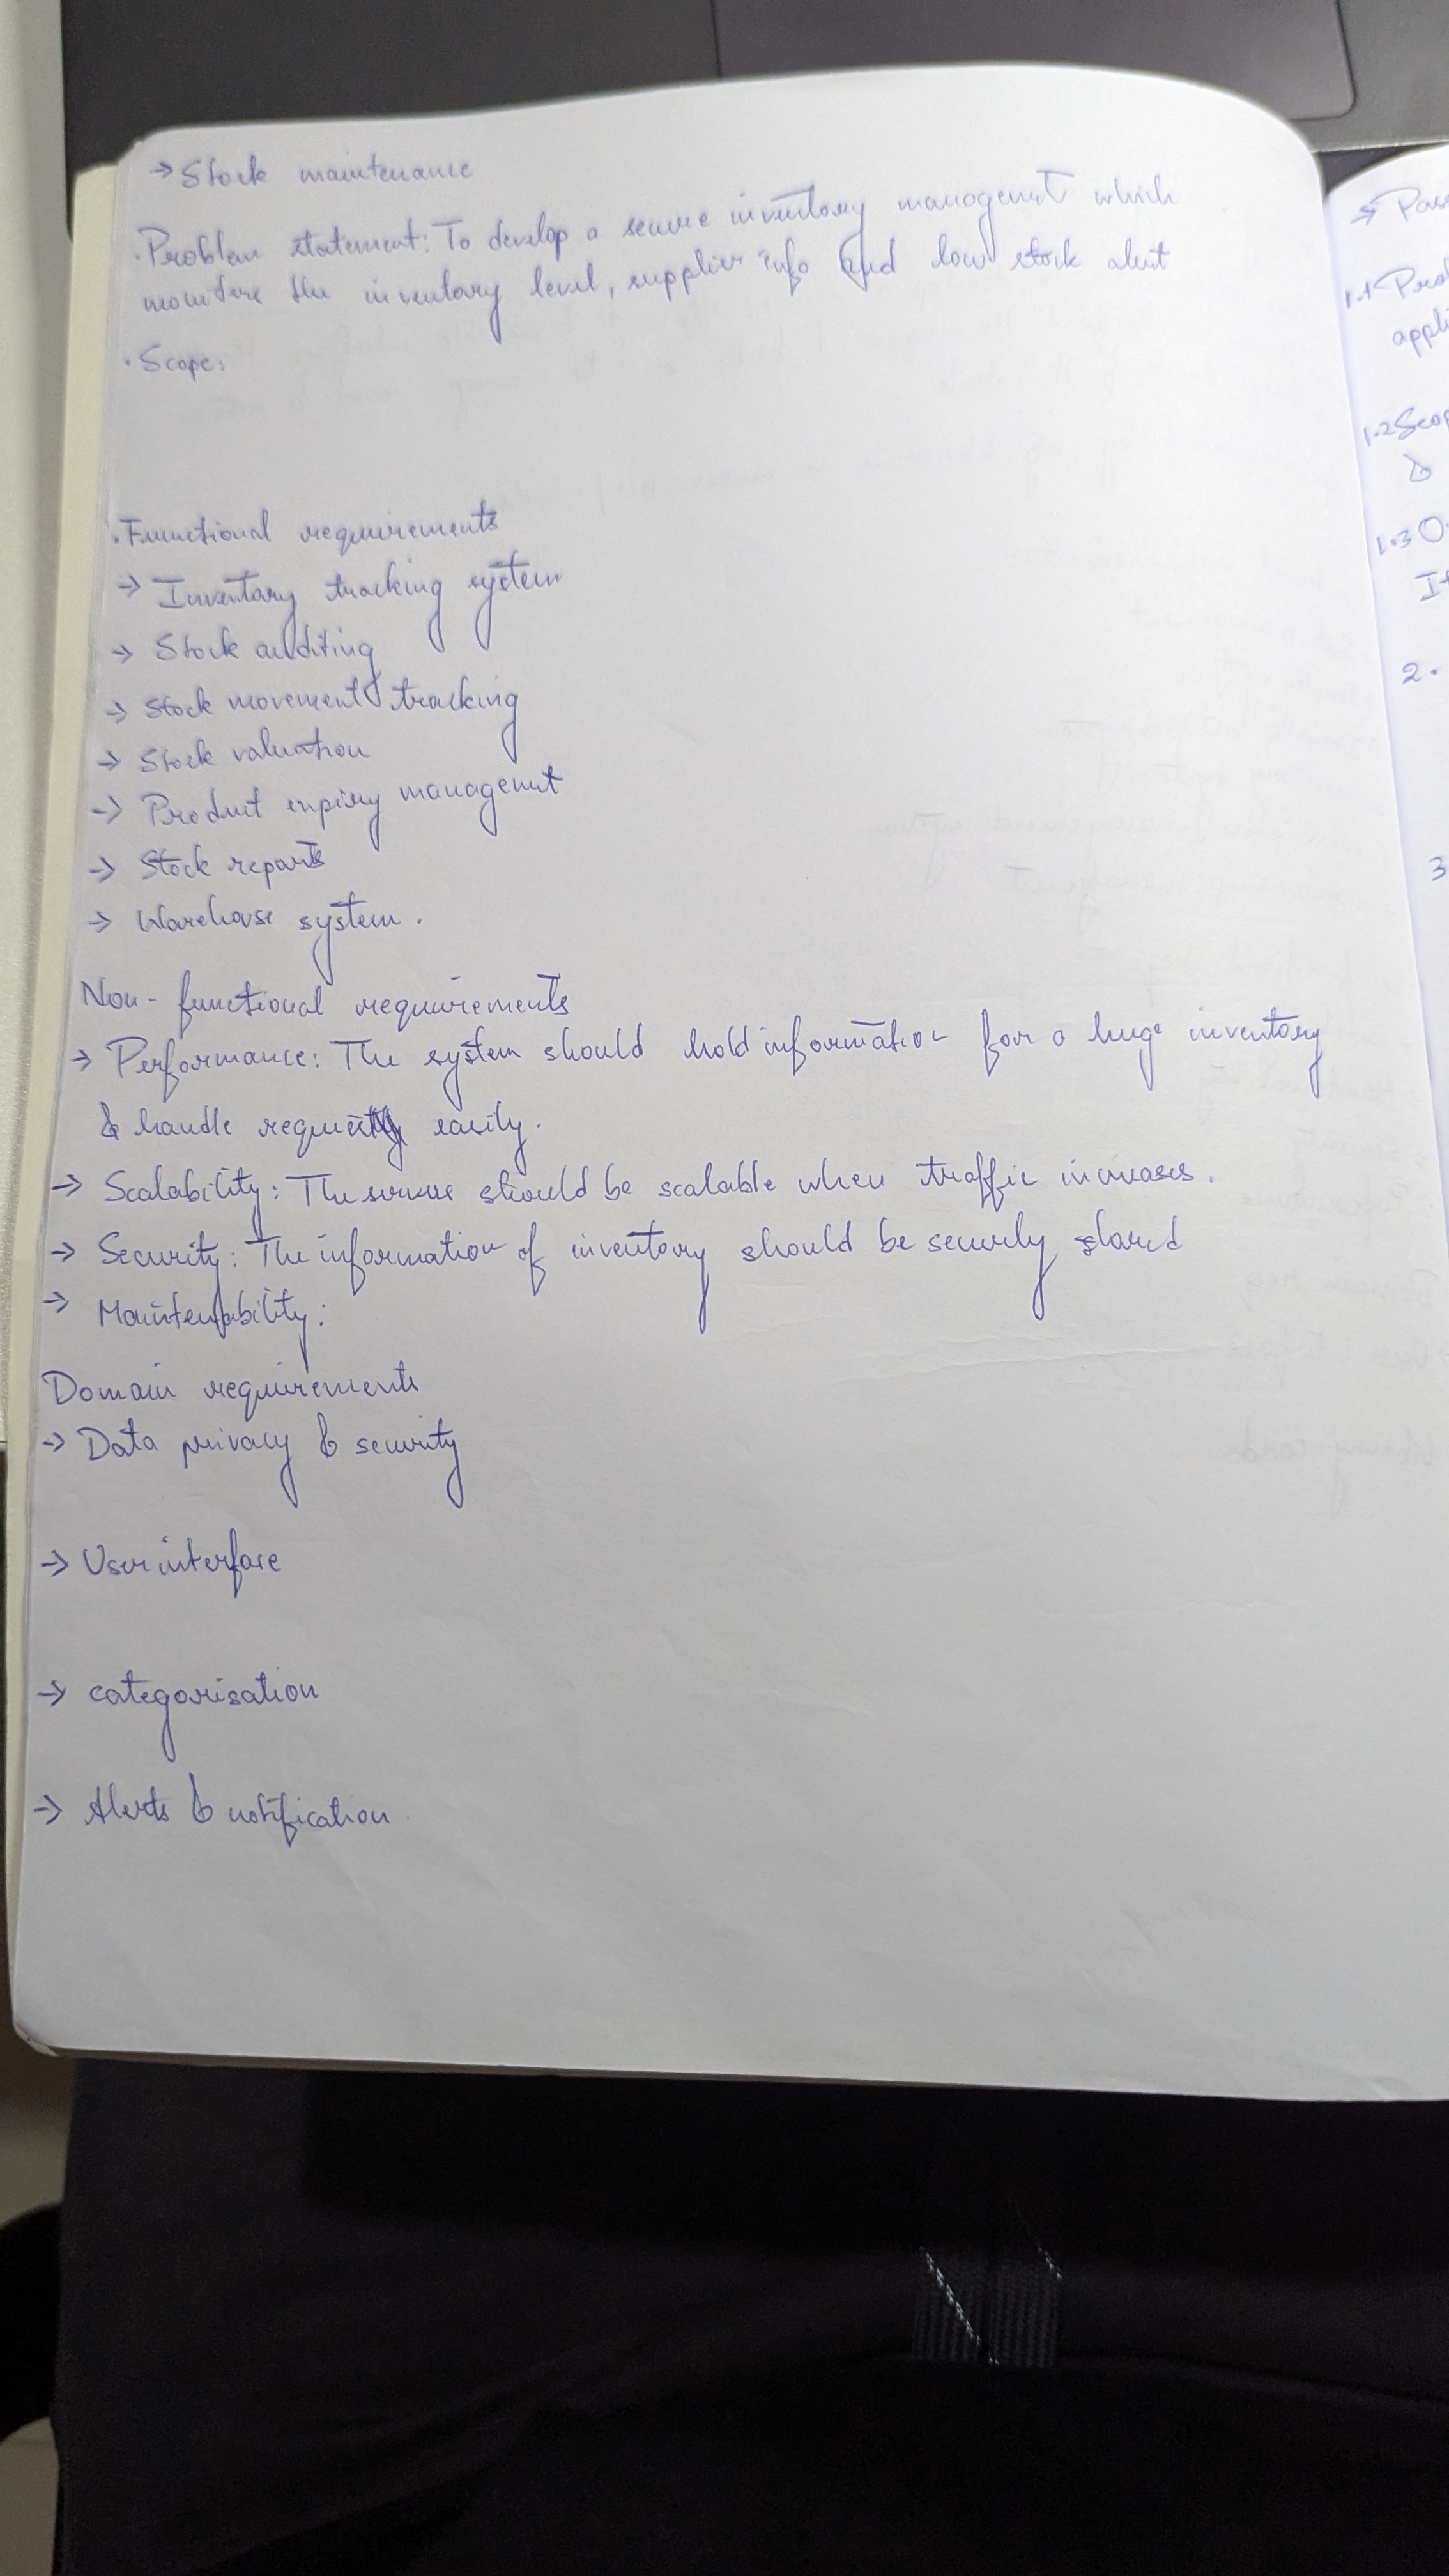 → Stock maintenance
· Problem statement: To develop a secure inventory managemnt which
monitors the inventory level, supplier info and low stock alert
· Scope:
· Functional requirements
→ Inventory tracking system
→ Stock auditing
→ Stock movement tracking
→ Stock valuation
→ Product expiry managemnt
→ Stock reports
→ Warehouse system.
Non-functional requirements
→ Performance: The system should hold information for a huge inventory
& handle easily.
→ Scalability: The should be scalable when traffic increases.
→ Security: The information of inventory should be securely
→ Maintenability:
Domain requirements
→ Data privacy & security
→ User interface
→ categorisation
→ Alerts & notification
→
1.1
1.2
&
1.3
2.
3